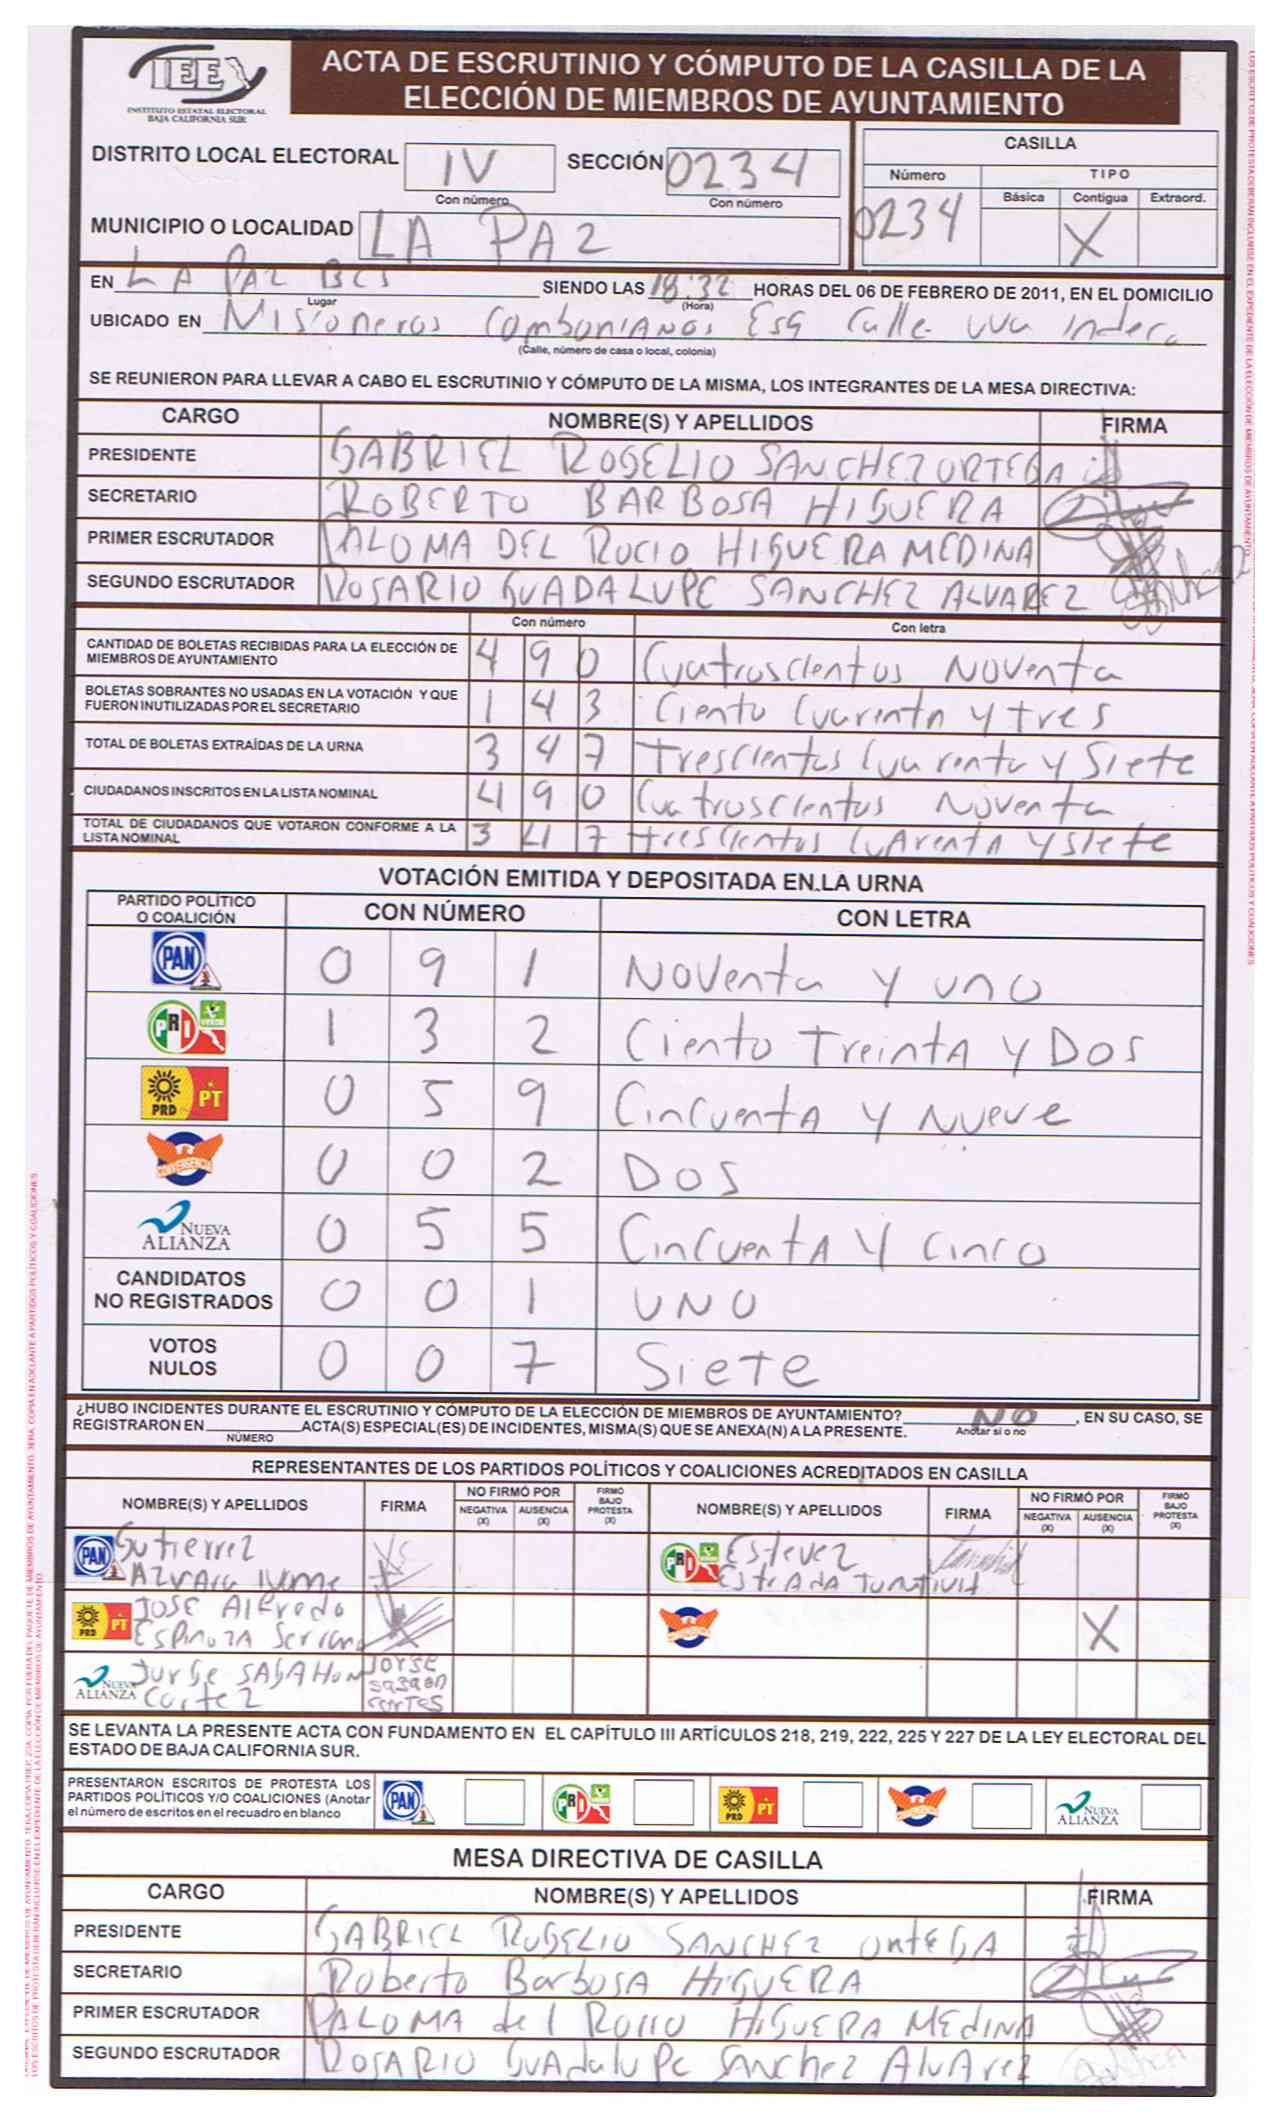 IEE
INSTITUTO ESTATAL ELECTORAL
BAJA CALIFORNIA SUR
ACTA DE ESCRUTINIO Y CÓMPUTO DE LA CASILLA DE LA
ELECCIÓN DE MIEMBROS DE AYUNTAMIENTO
DISTRITO LOCAL ELECTORAL IV SECCIÓN 0234
Con número Con número
CASILLA
Número TIPO
Básica Contigua Extraord.
0234 X
MUNICIPIO O LOCALIDAD LA PAZ
EN LA PAZ BCS SIENDO LAS 18:32 HORAS DEL 06 DE FEBRERO DE 2011, EN EL DOMICILIO
Lugar (Hora)
UBICADO EN Misioneros Combonianos Esq Calle
(Calle, número de casa o local, colonia)
SE REUNIERON PARA LLEVAR A CABO EL ESCRUTINIO Y CÓMPUTO DE LA MISMA, LOS INTEGRANTES DE LA MESA DIRECTIVA:
CARGO NOMBRE(S) Y APELLIDOS FIRMA
PRESIDENTE GABRIEL ROGELIO SANCHEZ ORTEGA
SECRETARIO ROBERTO BARBOSA HIGUERA
PRIMER ESCRUTADOR PALOMA DEL ROCIO HIGUERA MEDINA
SEGUNDO ESCRUTADOR ROSARIO GUADALUPE SANCHEZ ALVAREZ
Con número Con letra
CANTIDAD DE BOLETAS RECIBIDAS PARA LA ELECCIÓN DE
MIEMBROS DE AYUNTAMIENTO 4 9 0 Cuatroscientos Noventa
BOLETAS SOBRANTES NO USADAS EN LA VOTACIÓN Y QUE
FUERON INUTILIZADAS POR EL SECRETARIO 1 4 3 Ciento Cuarenta y tres
TOTAL DE BOLETAS EXTRAÍDAS DE LA URNA 3 4 7 Trescientos Cuarenta y Siete
CIUDADANOS INSCRITOS EN LA LISTA NOMINAL 4 9 0 Cuatroscientos Noventa
TOTAL DE CIUDADANOS QUE VOTARON CONFORME A LA
LISTA NOMINAL 3 4 7 trescientos cuarenta y siete
VOTACIÓN EMITIDA Y DEPOSITADA EN LA URNA
PARTIDO POLÍTICO
O COALICIÓN CON NÚMERO CON LETRA
PAN 0 9 1 Noventa y uno
PRI VERDE 1 3 2 Ciento Treinta y Dos
PRD PT 0 5 9 Cincuenta y Nueve
CONVERGENCIA 0 0 2 DOS
NUEVA ALIANZA 0 5 5 Cincuenta y Cinco
CANDIDATOS
NO REGISTRADOS 0 0 1 UNO
VOTOS
NULOS 0 0 7 Siete
¿HUBO INCIDENTES DURANTE EL ESCRUTINIO Y CÓMPUTO DE LA ELECCIÓN DE MIEMBROS DE AYUNTAMIENTO? NO, EN SU CASO, SE
REGISTRARON EN ACTA(S) ESPECIAL(ES) DE INCIDENTES, MISMA(S) QUE SE ANEXA(N) A LA PRESENTE. Anotar si o no
NÚMERO
REPRESENTANTES DE LOS PARTIDOS POLÍTICOS Y COALICIONES ACREDITADOS EN CASILLA
NOMBRE(S) Y APELLIDOS FIRMA NO FIRMÓ POR NEGATIVA (X) AUSENCIA (X) FIRMÓ BAJO PROTESTA (X) NOMBRE(S) Y APELLIDOS FIRMA NO FIRMÓ POR NEGATIVA (X) AUSENCIA (X) FIRMÓ BAJO PROTESTA (X)
PAN Gutierrez PRI Estevez
Estrada
PRD PT JOSE Alfredo X
ESPINOZA Serrano
NUEVA ALIANZA Jorge SAGAHON Jorge
Cortez sagaon
cortes
SE LEVANTA LA PRESENTE ACTA CON FUNDAMENTO EN EL CAPÍTULO III ARTÍCULOS 218, 219, 222, 225 Y 227 DE LA LEY ELECTORAL DEL
ESTADO DE BAJA CALIFORNIA SUR.
PRESENTARON ESCRITOS DE PROTESTA LOS
PARTIDOS POLÍTICOS Y/O COALICIONES (Anotar
el número de escritos en el recuadro en blanco
PAN PRI PRD PT NUEVA ALIANZA
MESA DIRECTIVA DE CASILLA
CARGO NOMBRE(S) Y APELLIDOS FIRMA
PRESIDENTE GABRIEL ROGELIO SANCHEZ ORTEGA
SECRETARIO Roberto Barbosa HIGUERA
PRIMER ESCRUTADOR PALOMA del Rocio HIGUERA MEDINA
SEGUNDO ESCRUTADOR ROSARIO GUAdalupe SANCHEZ AlvArez